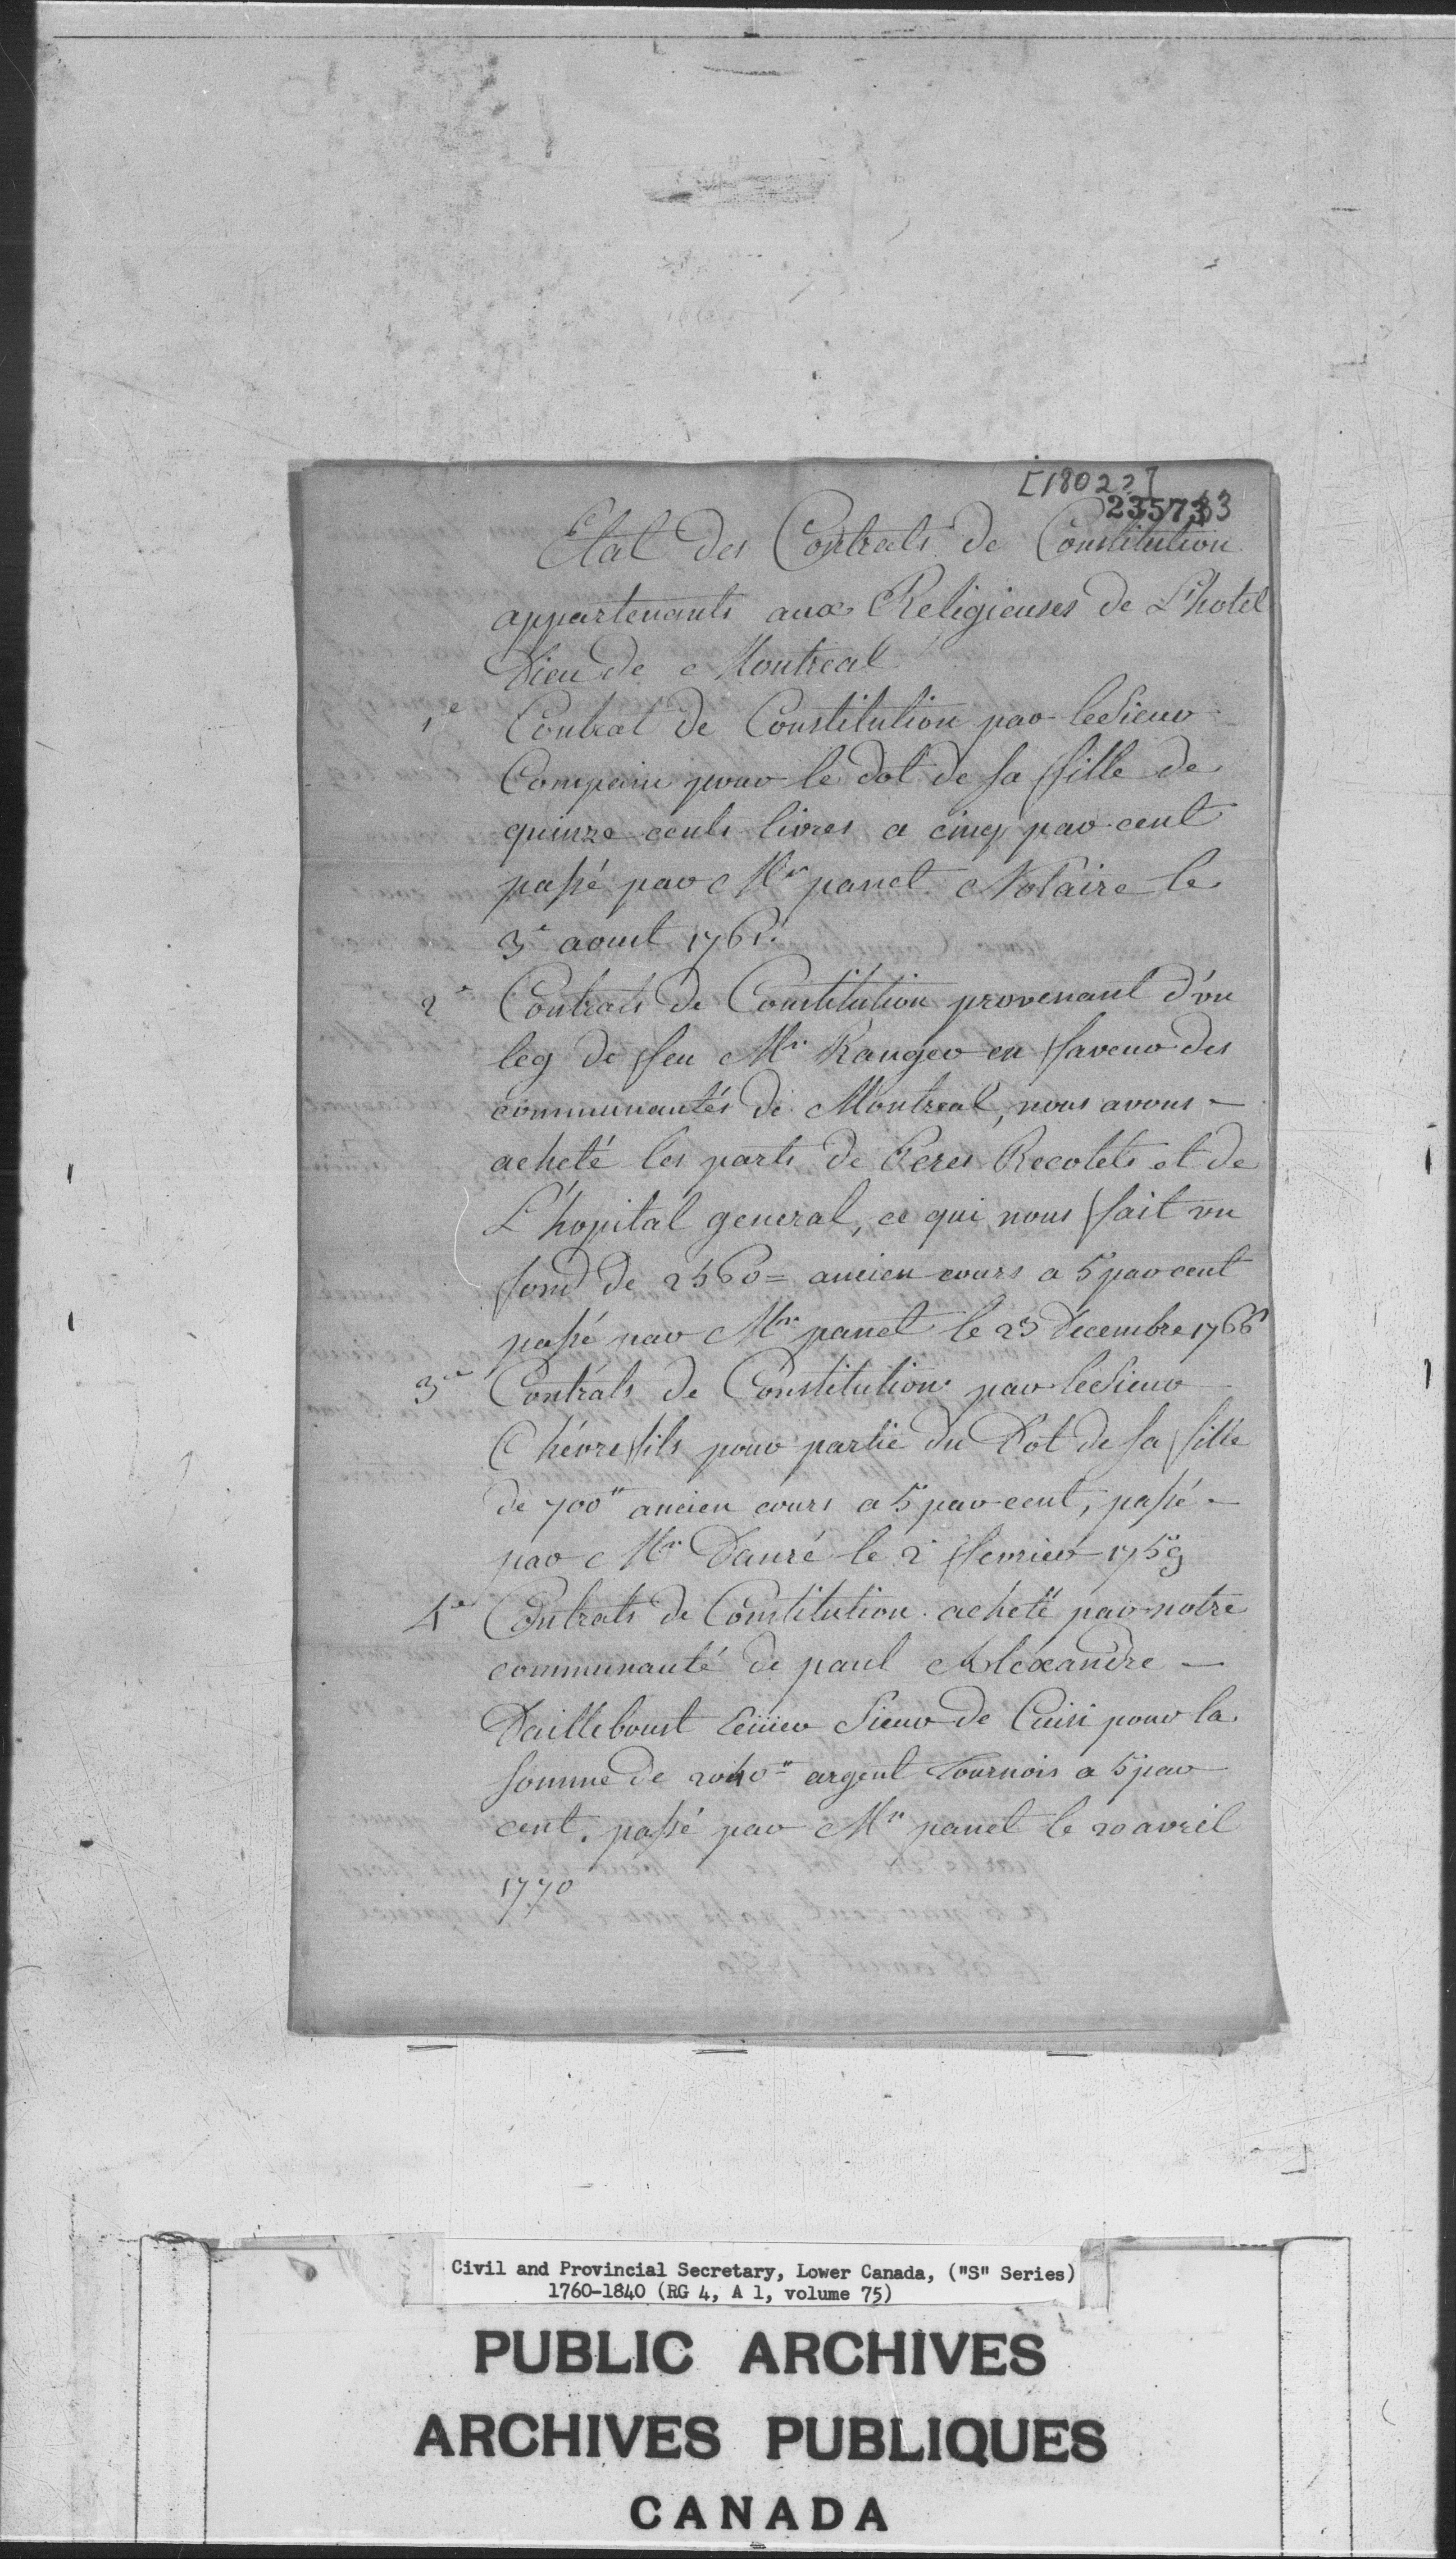 [1802?]
235733
Etat des Contrats de Constitution
appartenants aux Religieuses de L'hotel
Dieu de Montreal
1e Contrat de Constitution par le Sieur
Compain pour le dot de sa fille de
quinze cents livres a cinq par cent
passé par Mr panet Notaire le
3e aoust 1761.
2e Contrats de Constitution provenant d'vn
leg de feu Mr Ranger en faveur des
communautés de Montreal, nous avons
acheté les parts de Peres Recolets et de
L'hopital general, ce qui nous fait vn
fond de 2560= ancien cours a 5 par cent
passé par Mr panet le 23 Decembre 1766
3e Contrats de Constitution par le Sieur
Chévrefils pour partie du Dot de sa fille
de 700" ancien cours a 5 par cent, passé
par Mr Danré le 2e fevrier 1759
4e Contrats de Constitution acheté par notre
communauté de paul Alexandre
Dailleboust Sieur de Cuisi pour la
somme de 2040" argent Tournois a 5 par
cent, passé par Mr panet le 20 avril
1770
Civil and Provincial Secretary, Lower Canada, ("S" Series)
1760-1840 (RG 4, A 1, volume 75)
PUBLIC ARCHIVES
ARCHIVES PUBLIQUES
CANADA